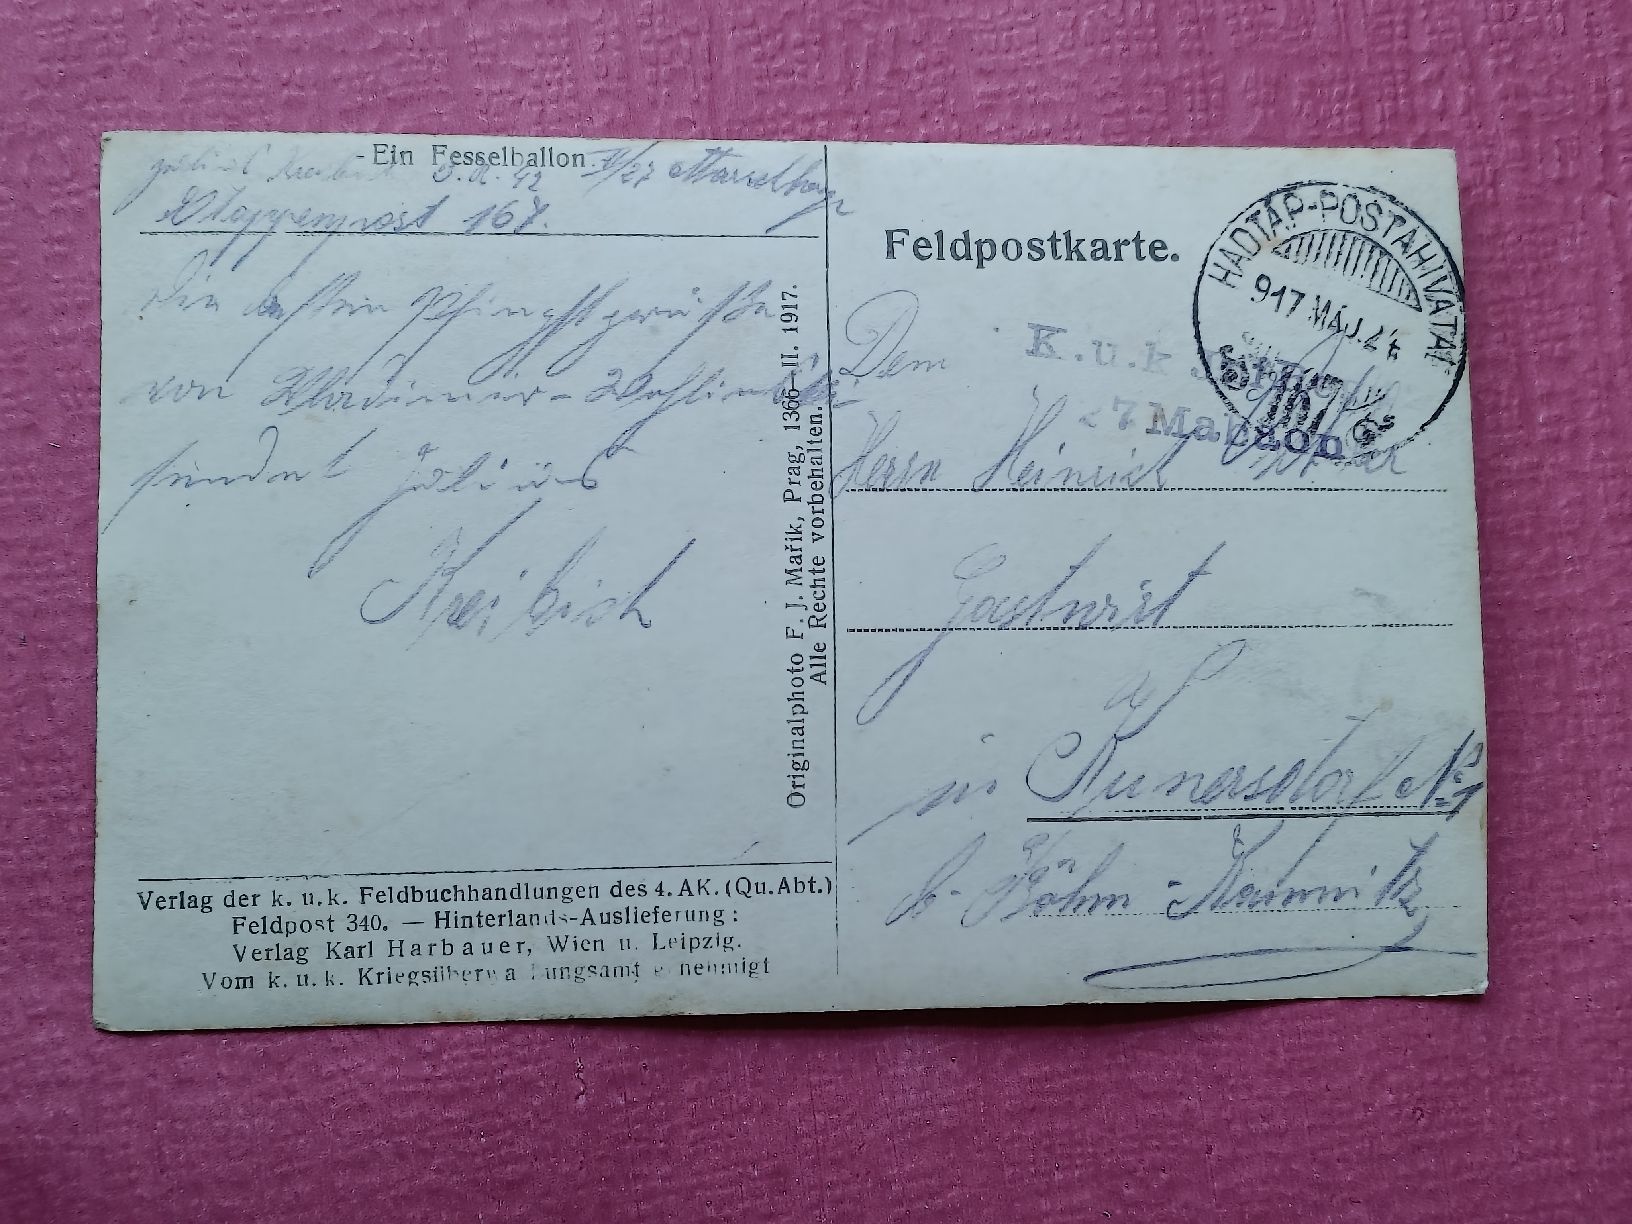 Ein Fesselballon.
Etappenpost 167.
Die besten Pfingstgrüße
von Wladimir-Wolinski
sendet Julius
Kreibich
Originalphoto F. J. Mařik, Prag, 1366—II. 1917.
Alle Rechte vorbehalten.
Verlag der k. u. k. Feldbuchhandlungen des 4. AK. (Qu. Abt.)
Feldpost 340. — Hinterlands-Auslieferung:
Verlag Karl Harbauer, Wien u. Leipzig.
Vom k. u. k. Kriegsüberwachungsamt genehmigt
Feldpostkarte.
HADTÁP-POSTAHIVATAL
917 MÁJ. 24
167
K. u. k.
Dem
Herrn Heinrich
Gastwirt
in Kunersdorf No 1
b. Böhm-Kamnitz